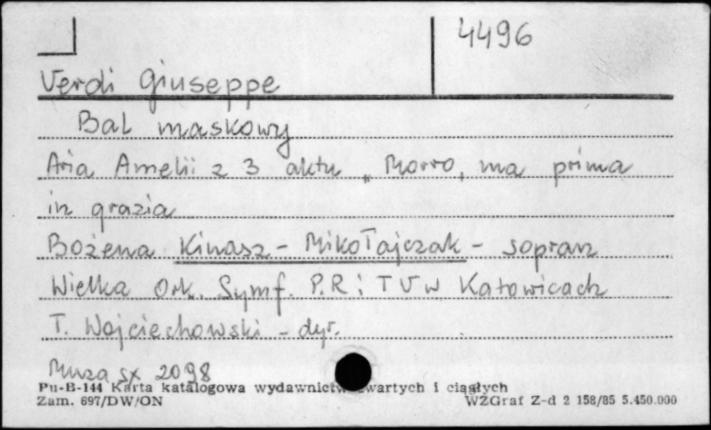 4496
Verdi Giuseppe
Bal maskowy
Aria Amelii z 3 aktu „Morro, ma prima
in grazia
Bożena Kinasz - Mikołajczak - sopran
Wielka Ork. Symf. P.R i TV w Katowicach
T. Wojciechowski - dyr.
Muza sx 2098
Pu-B-144 Karta katalogowa wydawnictw zwartych i ciągłych
Zam. 697/DW/ON WZGraf Z-d 2 158/85 5.450.000